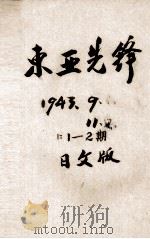 東亚先鋒
1943. 9.
11.
1-2期
日文版